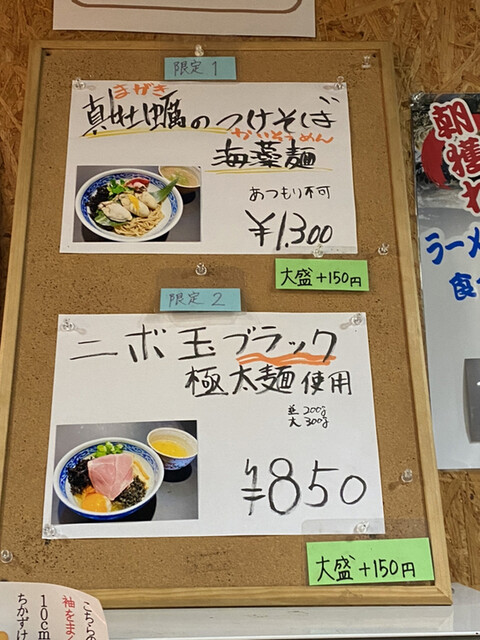 限定1
まがき
真牡蠣のつけそば
かいそうめん
海藻麺
あつもり不可
¥1,300
大盛+150円
限定2
ニボ玉ブラック
極太麺使用
並200g
大300g
¥850
大盛+150円
朝獲れ
ラーメ
食
こちらの
袖をまく
10cm
ちかずけ